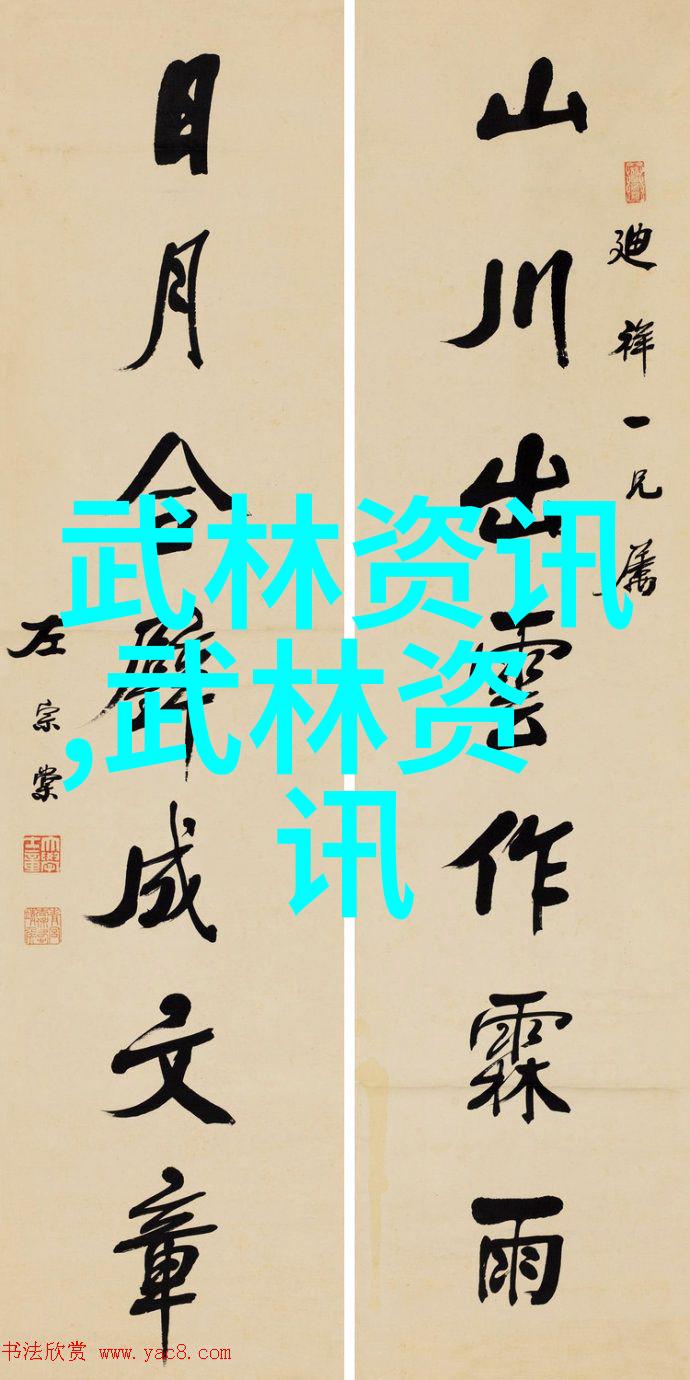 廸祥一兄屬
山川出雲作霖雨
日月合璧成文章
左宗棠
武林资讯
,武林资
讯
书法欣赏 www.yac8.com